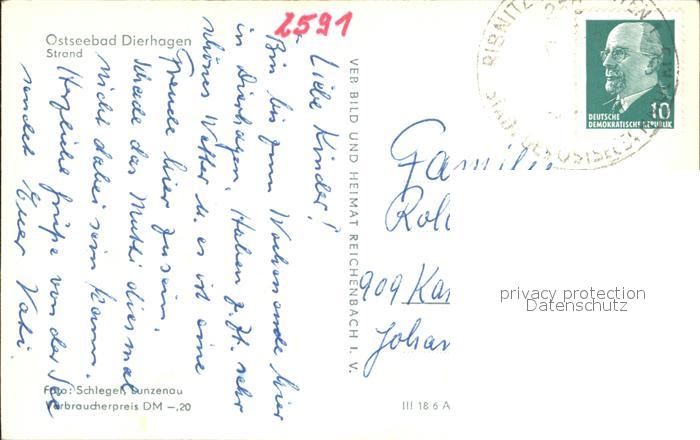 2591
Ostseebad Dierhagen
Strand
Liebe Kinder!
Bin bis zum Wochenende hier
in Dierhagen. Haben z. Zt. sehr
schönes Wetter u. es ist eine
Freude hier zu sein.
Schade das Mutti diesmal
nicht dabei sein kann.
Herzliche Grüße von der See
sendet Euer Vati.
Foto: Schlegel, Lunzenau
Verbraucherpreis DM —,20
VEB BILD UND HEIMAT REICHENBACH I. V.
III 18 6 A
RIBNITZ
10
DEUTSCHE
DEMOKRATISCHE REPUBLIK
Famili
Rol
909 Kar
Johan
privacy protection
Datenschutz